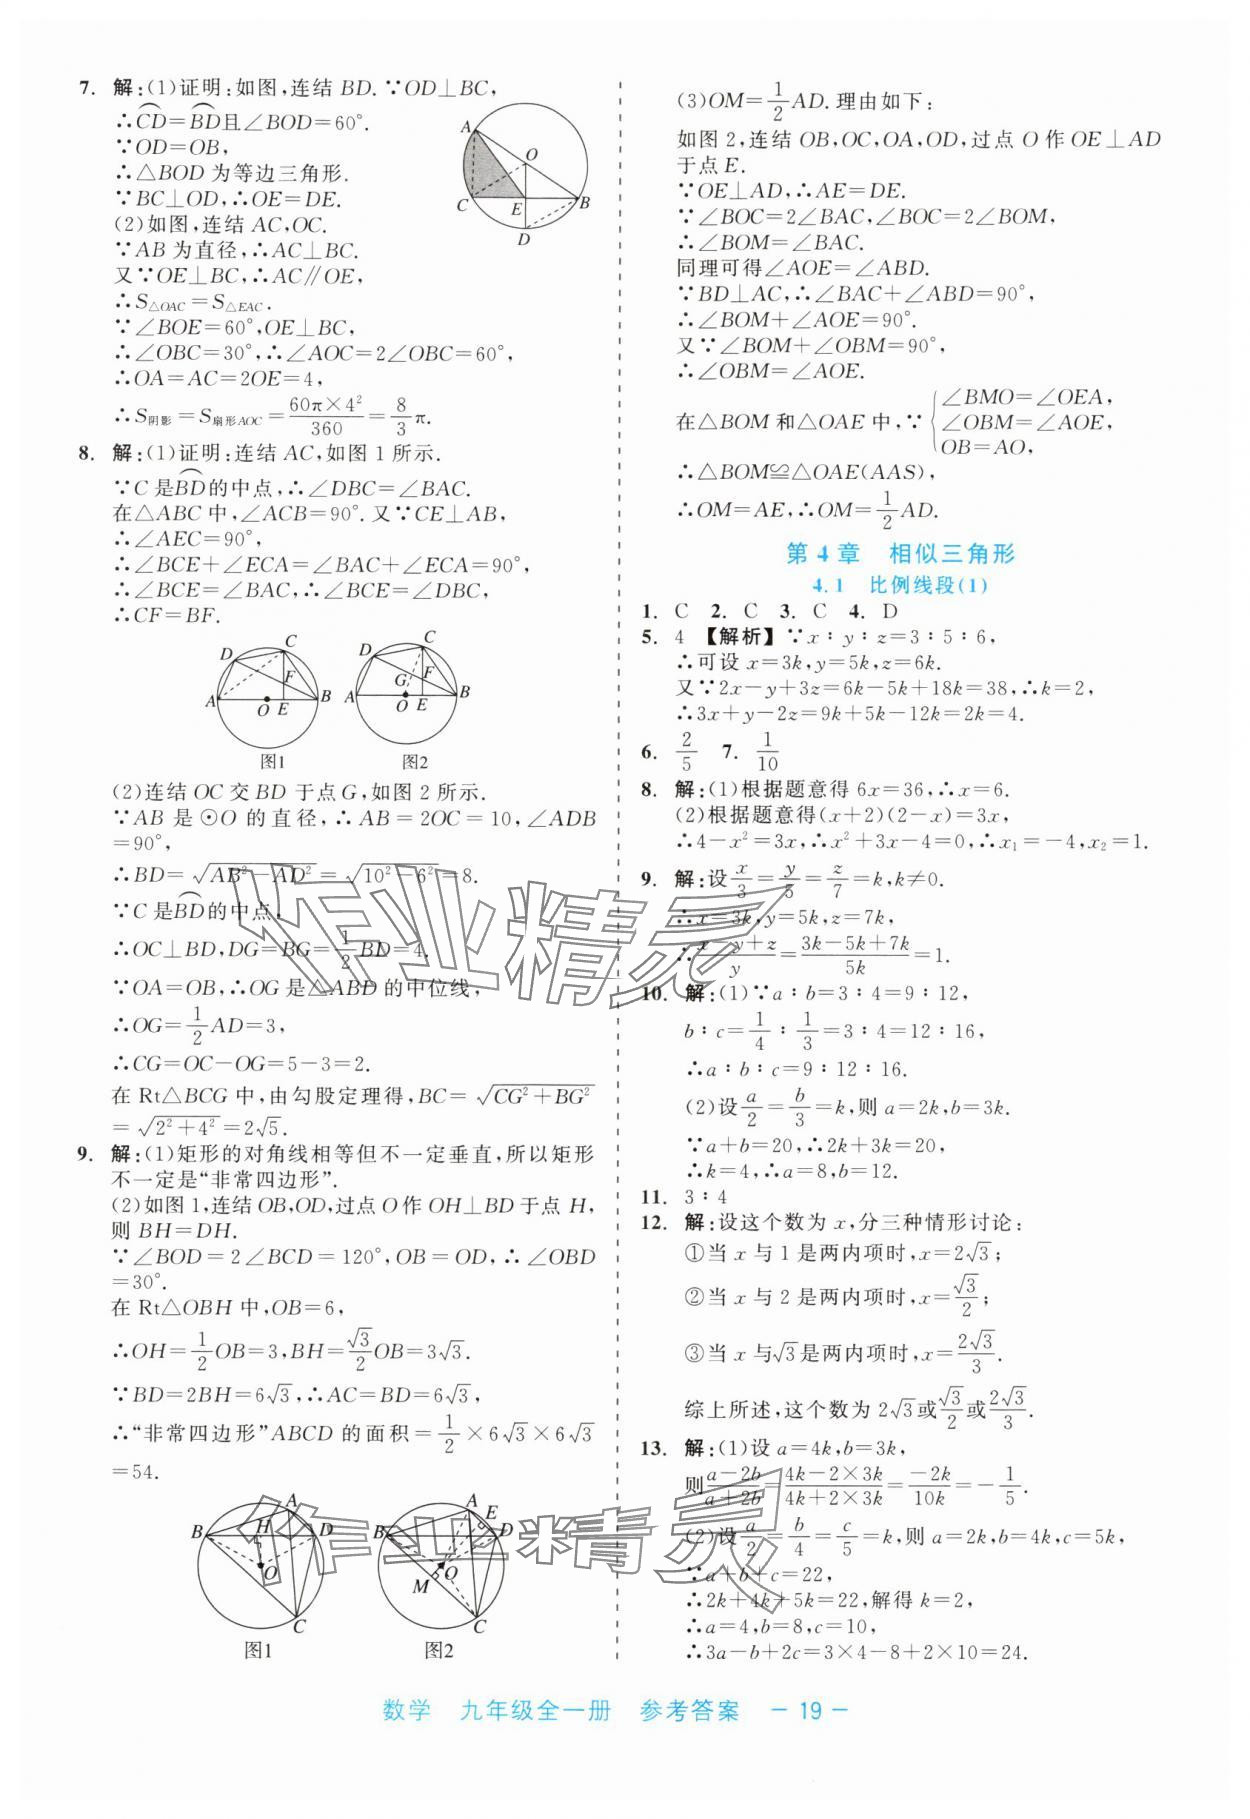 7. 解:(1)证明:如图,连结 BD. ∵OD⊥BC,
∴CD=BD且∠BOD=60°.
∵OD=OB,
∴△BOD 为等边三角形.
∵BC⊥OD,∴OE=DE.
(2)如图,连结 AC,OC.
∵AB 为直径,∴AC⊥BC.
又∵OE⊥BC,∴AC∥OE,
∴S△OAC=S△EAC.
∵∠BOE=60°,OE⊥BC,
∴∠OBC=30°,∴∠AOC=2∠OBC=60°,
∴OA=AC=2OE=4,
∴S阴影=S扇形AOC=60π×4²/360=8/3π.
A
O
C
E
B
D
8. 解:(1)证明:连结 AC,如图 1 所示.
∵C 是BD的中点,∴∠DBC=∠BAC.
在△ABC 中,∠ACB=90°.又∵CE⊥AB,
∴∠AEC=90°,
∴∠BCE+∠ECA=∠BAC+∠ECA=90°,
∴∠BCE=∠BAC,∴∠BCE=∠DBC,
∴CF=BF.
D C F A O E B
D C G F A O E B
图1 图2
(2)连结 OC 交 BD 于点 G,如图 2 所示.
∵AB 是⊙O 的直径,∴AB=2OC=10,∠ADB
=90°,
∴BD=√(AB²−AD²)=√(10²−6²)=8.
∵C 是BD的中点,
∴OC⊥BD,DG=BG=1/2BD=4.
∵OA=OB,∴OG 是△ABD 的中位线,
∴OG=1/2AD=3,
∴CG=OC−OG=5−3=2.
在 Rt△BCG 中,由勾股定理得,BC=√(CG²+BG²)
=√(2²+4²)=2√5.
9. 解:(1)矩形的对角线相等但不一定垂直,所以矩形
不一定是“非常四边形”.
(2)如图 1,连结 OB,OD,过点 O 作 OH⊥BD 于点 H,
则 BH=DH.
∵∠BOD=2∠BCD=120°,OB=OD,∴∠OBD
=30°.
在 Rt△OBH 中,OB=6,
∴OH=1/2OB=3,BH=√3/2OB=3√3.
∵BD=2BH=6√3,∴AC=BD=6√3,
∴“非常四边形”ABCD 的面积=1/2×6√3×6√3
=54.
A B H D O C
A E B D O M C
图1 图2
(3)OM=1/2AD.理由如下:
如图 2,连结 OB,OC,OA,OD,过点 O 作 OE⊥AD
于点 E.
∵OE⊥AD,∴AE=DE.
∵∠BOC=2∠BAC,∠BOC=2∠BOM,
∴∠BOM=∠BAC.
同理可得∠AOE=∠ABD.
∵BD⊥AC,∴∠BAC+∠ABD=90°,
∴∠BOM+∠AOE=90°.
又∵∠BOM+∠OBM=90°,
∴∠OBM=∠AOE.
在△BOM 和△OAE 中,∵{∠BMO=∠OEA,
∠OBM=∠AOE,
OB=AO,
∴△BOM≌△OAE(AAS),
∴OM=AE,∴OM=1/2AD.
第 4 章 相似三角形
4.1 比例线段(1)
1. C 2. C 3. C 4. D
5. 4 【解析】∵x∶y∶z=3∶5∶6,
∴可设 x=3k,y=5k,z=6k.
又∵2x−y+3z=6k−5k+18k=38,∴k=2,
∴3x+y−2z=9k+5k−12k=2k=4.
6. 2/5 7. 1/10
8. 解:(1)根据题意得 6x=36,∴x=6.
(2)根据题意得(x+2)(2−x)=3x,
∴4−x²=3x,∴x²+3x−4=0,∴x₁=−4,x₂=1.
9. 解:设x/3=y/5=z/7=k,k≠0.
∴x=3k,y=5k,z=7k,
∴(x−y+z)/y=(3k−5k+7k)/5k=1.
10. 解:(1)∵a∶b=3∶4=9∶12,
b∶c=1/4∶1/3=3∶4=12∶16,
∴a∶b∶c=9∶12∶16.
(2)设a/2=b/3=k,则 a=2k,b=3k.
∵a+b=20,∴2k+3k=20,
∴k=4,∴a=8,b=12.
11. 3∶4
12. 解:设这个数为 x,分三种情形讨论:
①当 x 与 1 是两内项时,x=2√3;
②当 x 与 2 是两内项时,x=√3/2;
③当 x 与√3是两内项时,x=2√3/3.
综上所述,这个数为 2√3或√3/2或2√3/3.
13. 解:(1)设 a=4k,b=3k,
则(a−2b)/(a+2b)=(4k−2×3k)/(4k+2×3k)=−2k/10k=−1/5.
(2)设a/2=b/4=c/5=k,则 a=2k,b=4k,c=5k,
∵a+b+c=22,
∴2k+4k+5k=22,解得 k=2,
∴a=4,b=8,c=10,
∴3a−b+2c=3×4−8+2×10=24.
作业精灵
作业精灵
数学 九年级全一册 参考答案 −19−